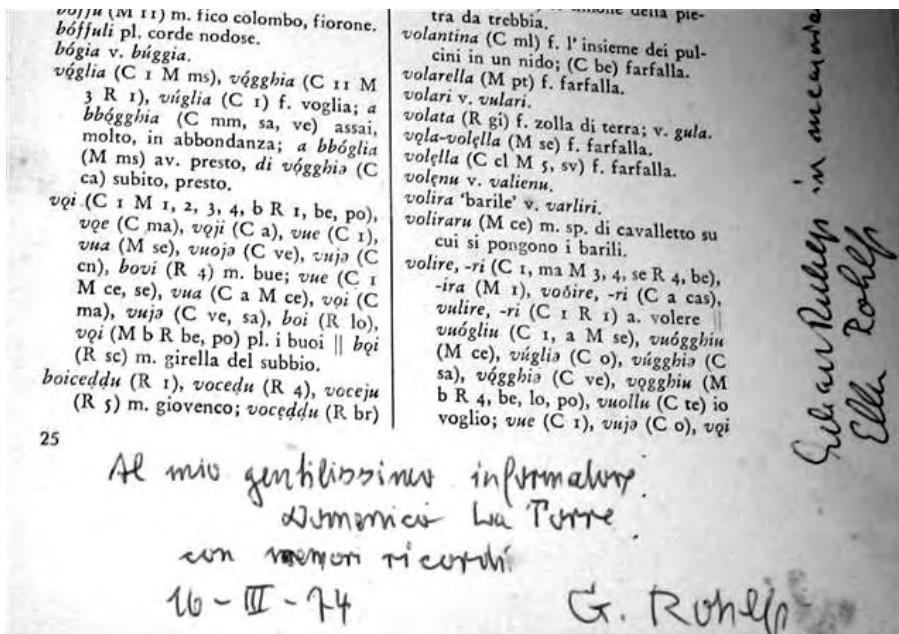 (M 11) m. fico colombo, fiorone.
bóffuli pl. corde nodose.
bógia v. búggia.
vóglia (C 1 M ms), vógghia (C 11 M
3 R 1), vúglia (C 1) f. voglia; a
bbógghia (C mm, sa, ve) assai,
molto, in abbondanza; a bbóglia
(M ms) av. presto, di vógghiə (C
ca) subito, presto.
vǫi (C 1 M 1, 2, 3, 4, b R 1, be, po),
vǫe (C ma), vǫji (C a), vue (C 1),
vua (M se), vuojə (C ve), vujə (C
cn), bovi (R 4) m. bue; vue (C 1
M ce, se), vua (C a M ce), vǫi (C
ma), vujə (C ve, sa), boi (R lo),
vǫi (M b R be, po) pl. i buoi || bǫi
(R sc) m. girella del subbio.
boiceḍḍu (R 1), vocedu (R 4), voceju
(R 5) m. giovenco; vocęḍḍu (R br)
della pie-
tra da trebbia.
volantina (C ml) f. l'insieme dei pul-
cini in un nido; (C be) farfalla.
volarella (M pt) f. farfalla.
volari v. vulari.
volata (R gi) f. zolla di terra; v. gula.
vǫla-volęlla (M se) f. farfalla.
volęlla (C cl M 5, sv) f. farfalla.
volęnu v. valienu.
volira 'barile' v. varliri.
voliraru (M ce) m. sp. di cavalletto su
cui si pongono i barili.
volire, -ri (C 1, ma M 3, 4, se R 4, be),
-ira (M 1), voδire, -ri (C a cas),
vulire, -ri (C 1 R 1) a. volere ||
vuógliu (C 1, a M se), vuógghiu
(M ce), vúgliə (C o), vúgghiə (C
sa), vógghiə (C ve), vǫgghiu (M
b R 4, be, lo, po), vuollu (C te) io
voglio; vue (C 1), vujə (C o), vǫi
25
Al mio gentilissimo informatore
Domenico La Torre
con memori ricordi
16-III-74 G. Rohlfs
Rohlfs in
Ella Rohlfs